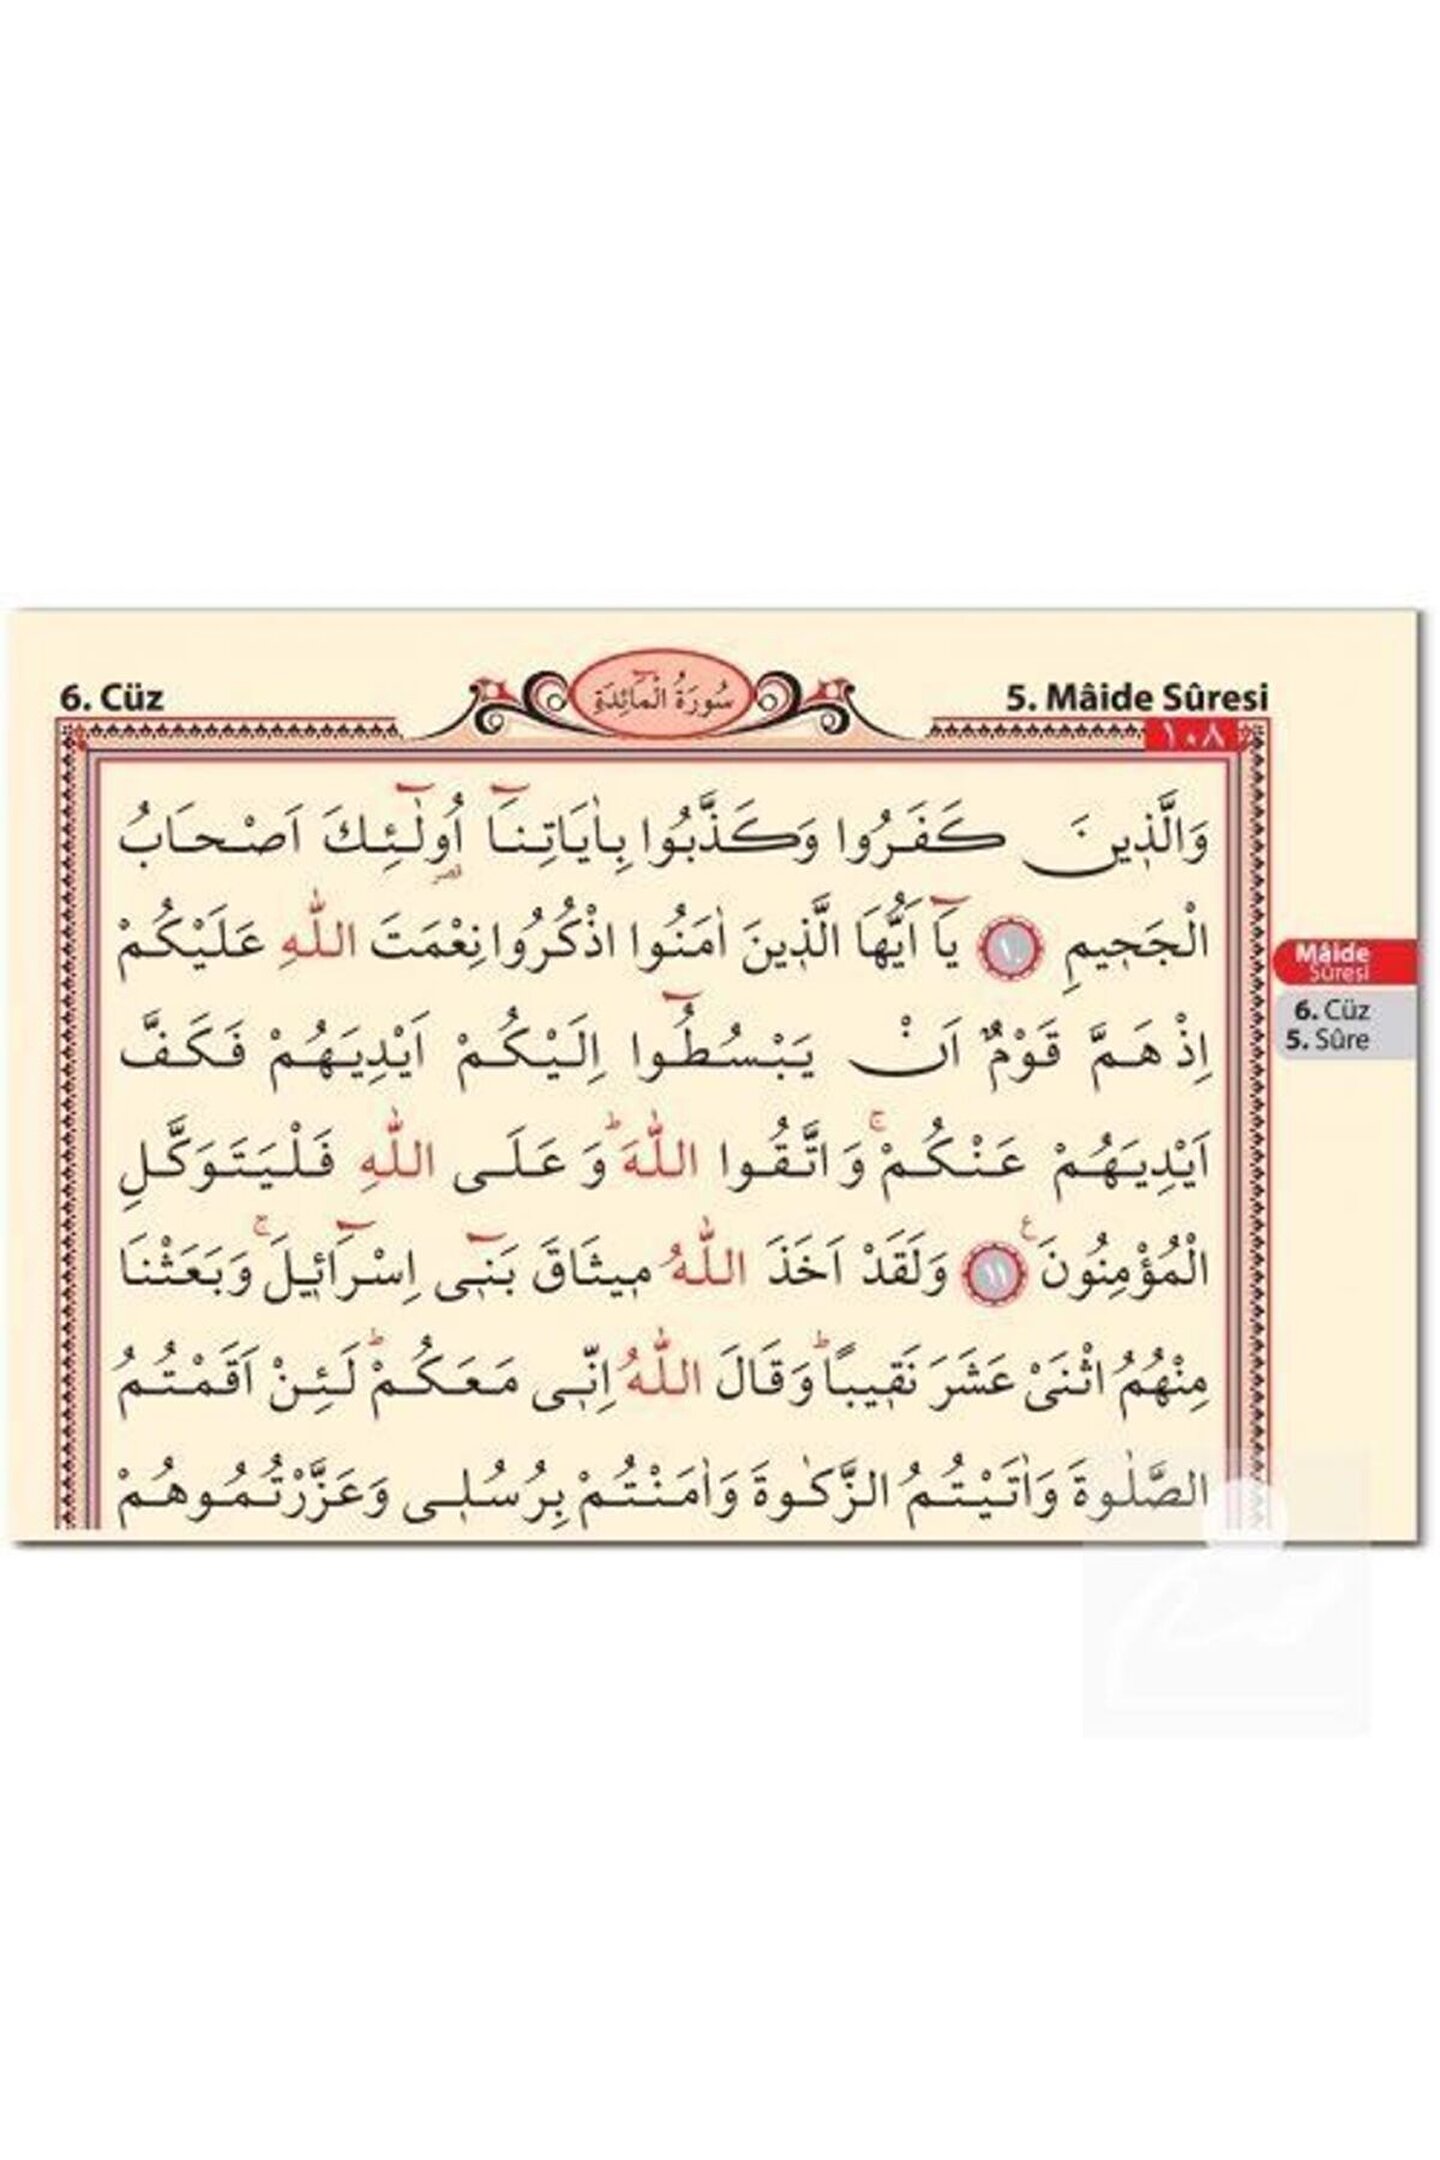 6. Cüz
سُورَةُ الْمَائِدَةِ
5. Mâide Sûresi
١٠٨
وَالَّذ۪ينَ كَفَرُوا وَكَذَّبُوا بِاٰيَاتِنَٓا اُو۬لٰٓئِكَ اَصْحَابُ
الْجَح۪يمِ ١٠ يَٓا اَيُّهَا الَّذ۪ينَ اٰمَنُوا اذْكُرُوا نِعْمَتَ اللّٰهِ عَلَيْكُمْ
اِذْ هَمَّ قَوْمٌ اَنْ يَبْسُطُٓوا اِلَيْكُمْ اَيْدِيَهُمْ فَكَفَّ
اَيْدِيَهُمْ عَنْكُمْۚ وَاتَّقُوا اللّٰهَؕ وَعَلَى اللّٰهِ فَلْيَتَوَكَّلِ
الْمُؤْمِنُونَ ع ١١ وَلَقَدْ اَخَذَ اللّٰهُ م۪يثَاقَ بَن۪ٓي اِسْرَٓائ۪يلَۚ وَبَعَثْنَا
مِنْهُمُ اثْنَيْ عَشَرَ نَق۪يبًاؕ وَقَالَ اللّٰهُ اِنّ۪ي مَعَكُمْؕ لَئِنْ اَقَمْتُمُ
الصَّلٰوةَ وَاٰتَيْتُمُ الزَّكٰوةَ وَاٰمَنْتُمْ بِرُسُل۪ي وَعَزَّرْتُمُوهُمْ
Mâide
Sûresi
6. Cüz
5. Sûre